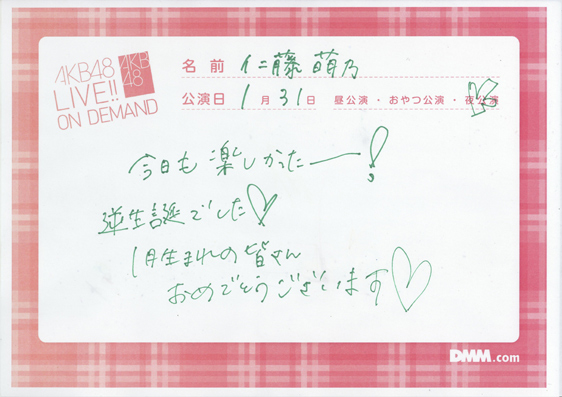 AKB48
LIVE!!
ON DEMAND
AKB
48
名前 仁藤萌乃
公演日 1月31日 昼公演・おやつ公演・夜公演
今日も楽しかったー!
逆生誕でした♡
1月生まれの皆さん
おめでとうございます♡
DMM.com